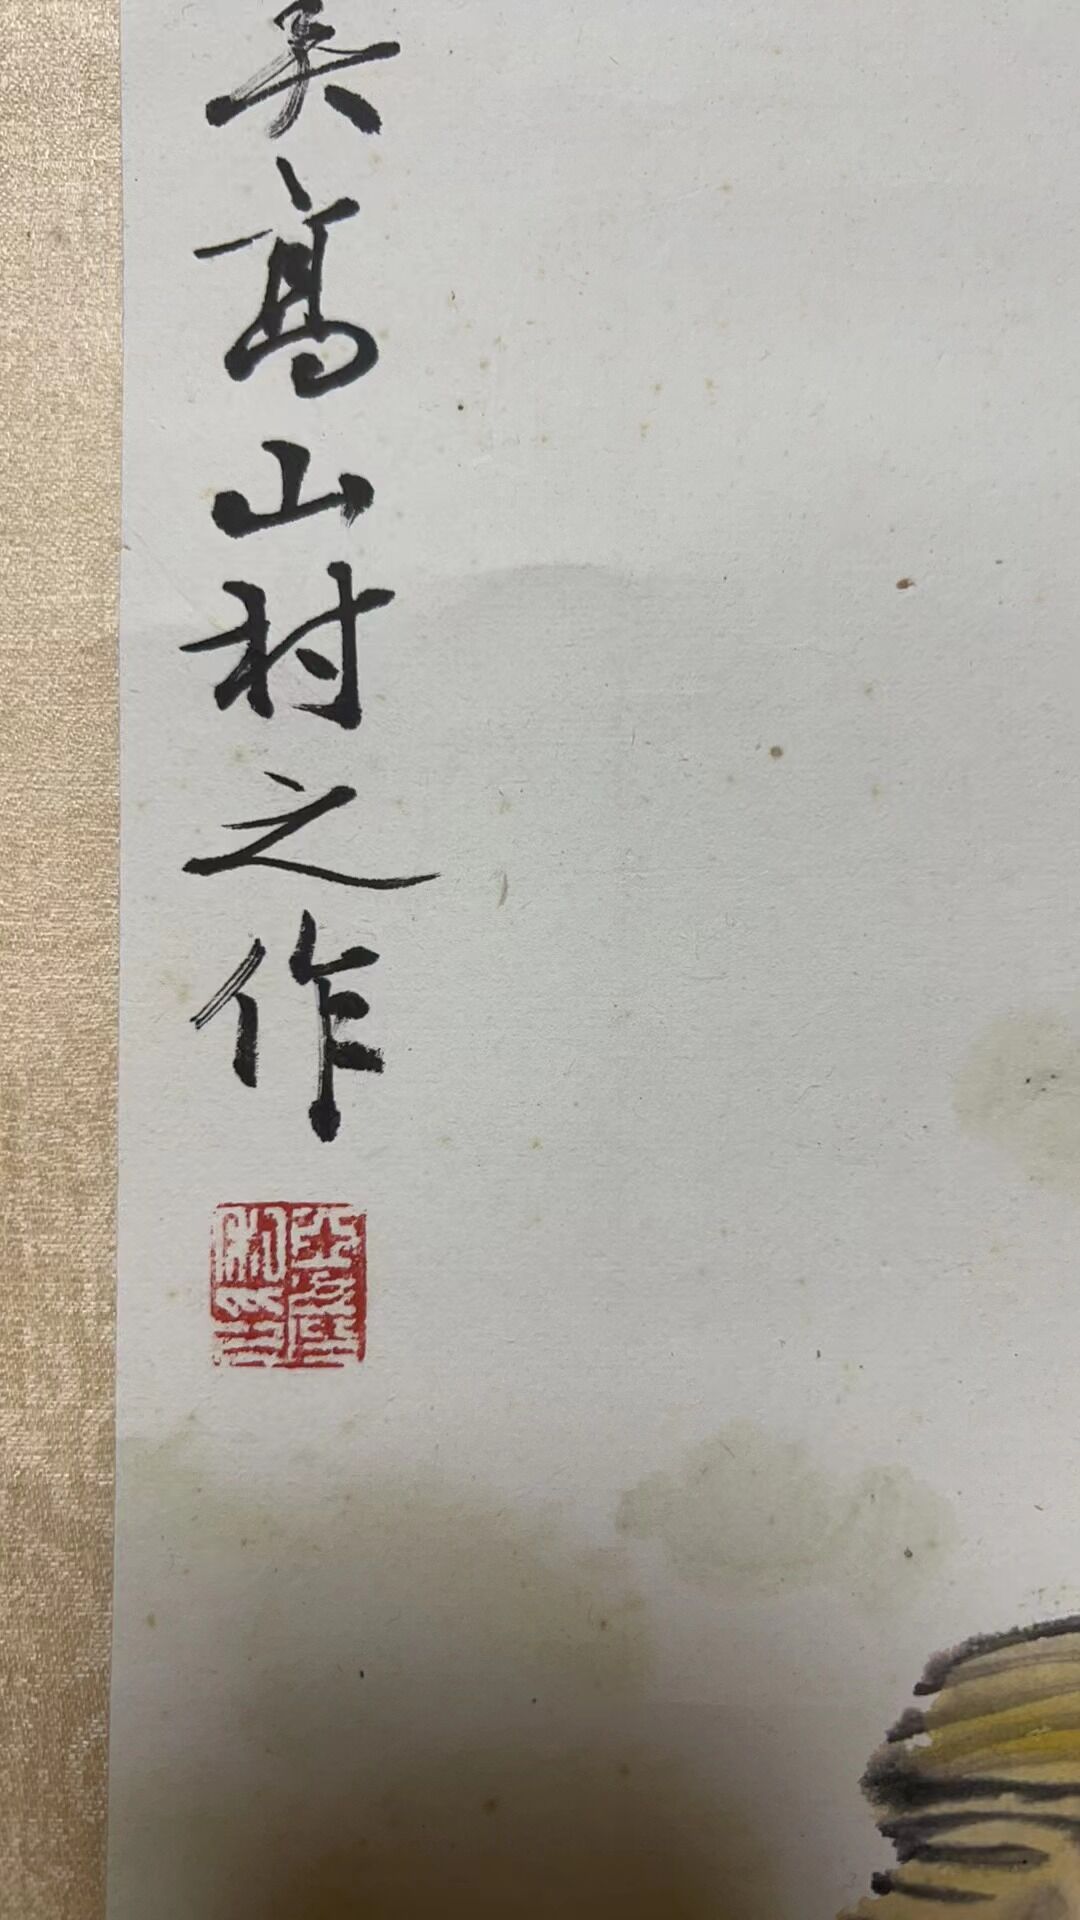 吴高山村之作